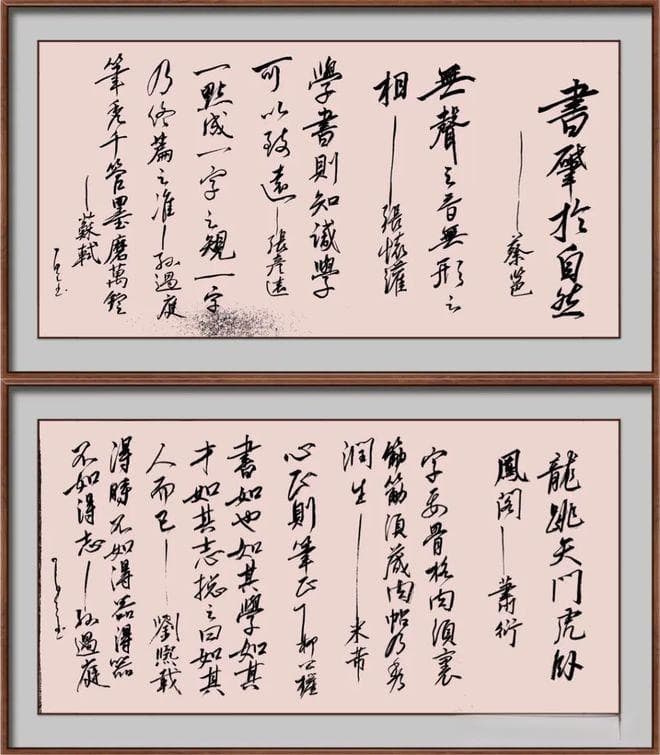 書肇於自然
——蔡邕
無聲之音無形之
相——張懷瓘
學書則知識學
可以致遠—張彦遠
一點成一字之規一字
乃終篇之准—孙過庭
筆禿千管墨磨萬鋌
—蘇軾
龍跳天門虎卧
鳳閣—蕭衍
字要骨格肉須裹
筋筋須藏肉帖乃秀
潤生——米芾
心正則筆正—柳公權
書如也如其學如其
才如其志総之曰如其
人而已——劉熙載
得時不如得器得器
不如得志—孙過庭